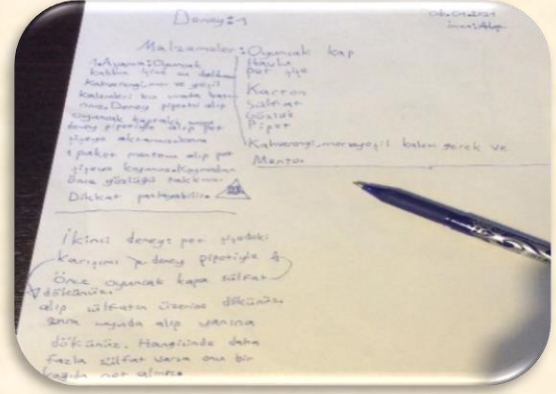 Deney:1
Malzemeler: Oyuncak kap
Havlu
pet şişe
Karton
Sülfat
Gözlük
Pipet
Kahverengi, mor, yeşil kalem gerek ve
Mentos
1. Aşama: Oyuncak
kabın içine su
Kahverengi, mor ve yeşil
kalemleri bu
Deney pipeti alıp
oyuncak kaptaki
deney pipetiyle alıp pet
şişeye
1 paket mentos alıp pet
şişeye
önce gözlüğü
Dikkat patlayabilir.
İkinci deney: pet şişedeki
karışımı deney pipetiyle
önce oyuncak kapa sülfat
dökünüz.
alıp sülfatın üzerine dökünüz
sonra alıp yanına
dökünüz. Hangisinde daha
fazla sülfat varsa onu bir
kağıda not alınız.